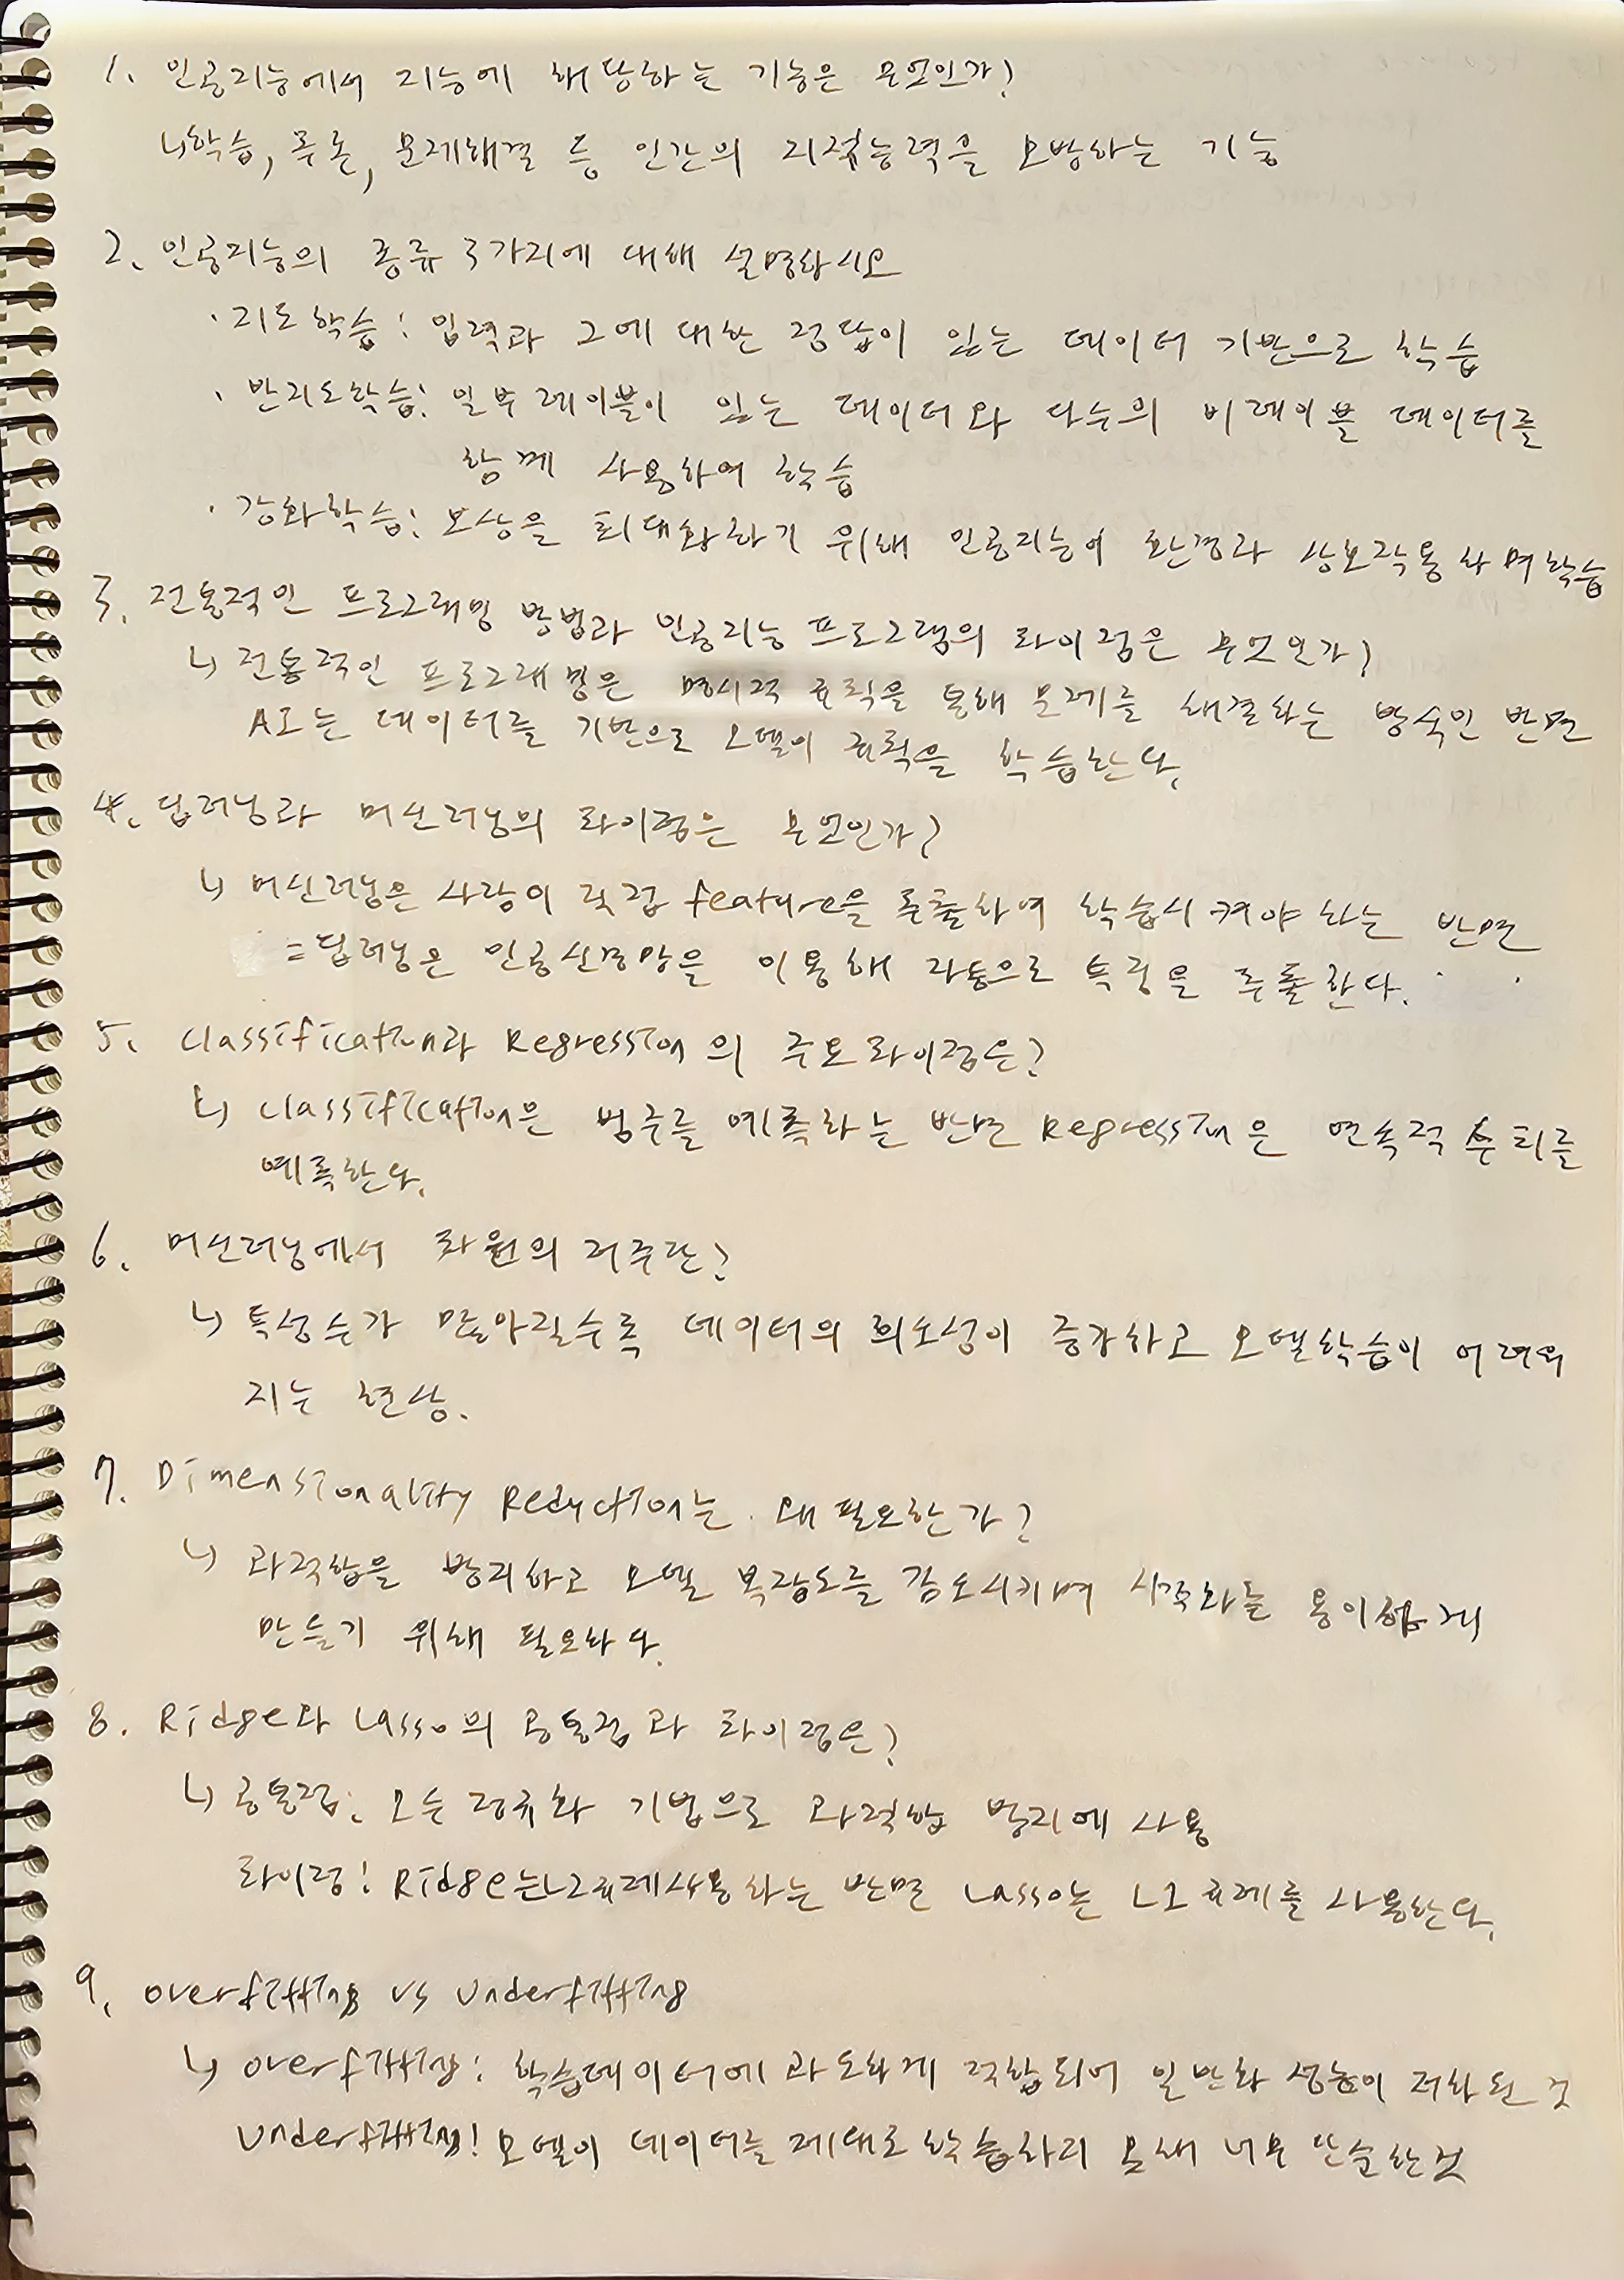 1. 인공지능에서 지능에 해당하는 기능은 무엇인가?
↳학습, 추론, 문제해결 등 인간의 지적능력을 모방하는 기능
2. 인공지능의 종류 3가지에 대해 설명하시오
· 지도학습: 입력과 그에 대한 정답이 있는 데이터 기반으로 학습
· 반지도학습: 일부 레이블이 있는 데이터와 다수의 비레이블 데이터를
함께 사용하여 학습
· 강화학습: 보상을 최대화하기 위해 인공지능이 환경과 상호작용하며 학습
3. 전통적인 프로그래밍 방법과 인공지능 프로그램의 차이점은 무엇인가?
↳ 전통적인 프로그래밍은 명시적 규칙을 통해 문제를 해결하는 방식인 반면
AI는 데이터를 기반으로 모델이 규칙을 학습한다.
4. 딥러닝과 머신러닝의 차이점은 무엇인가?
↳ 머신러닝은 사람이 직접 feature을 추출하여 학습시켜야 하는 반면
=딥러닝은 인공신경망을 이용해 자동으로 특징을 추출한다.
5. Classification과 Regression의 주요 차이점은?
↳ Classification은 범주를 예측하는 반면 Regression은 연속적 수치를
예측한다.
6. 머신러닝에서 차원의 저주란?
↳ 특성 수가 많아질수록 데이터의 희소성이 증가하고 모델학습이 어려워
지는 현상.
7. Dimensionality Reduction는 왜 필요한가?
↳ 과적합을 방지하고 모델 복잡도를 감소시키며 시각화를 용이하게
만들기 위해 필요하다.
8. Ridge와 Lasso의 공통점과 차이점은?
↳ 공통점: 모두 정규화 기법으로 과적합 방지에 사용
차이점: Ridge는 L2규제 사용하는 반면 Lasso는 L1 규제를 사용한다.
9. overfitting vs underfitting
↳ overfitting: 학습데이터에 과도하게 적합되어 일반화 성능이 저하된 것
underfitting: 모델이 데이터를 제대로 학습하지 못해 너무 단순한 것